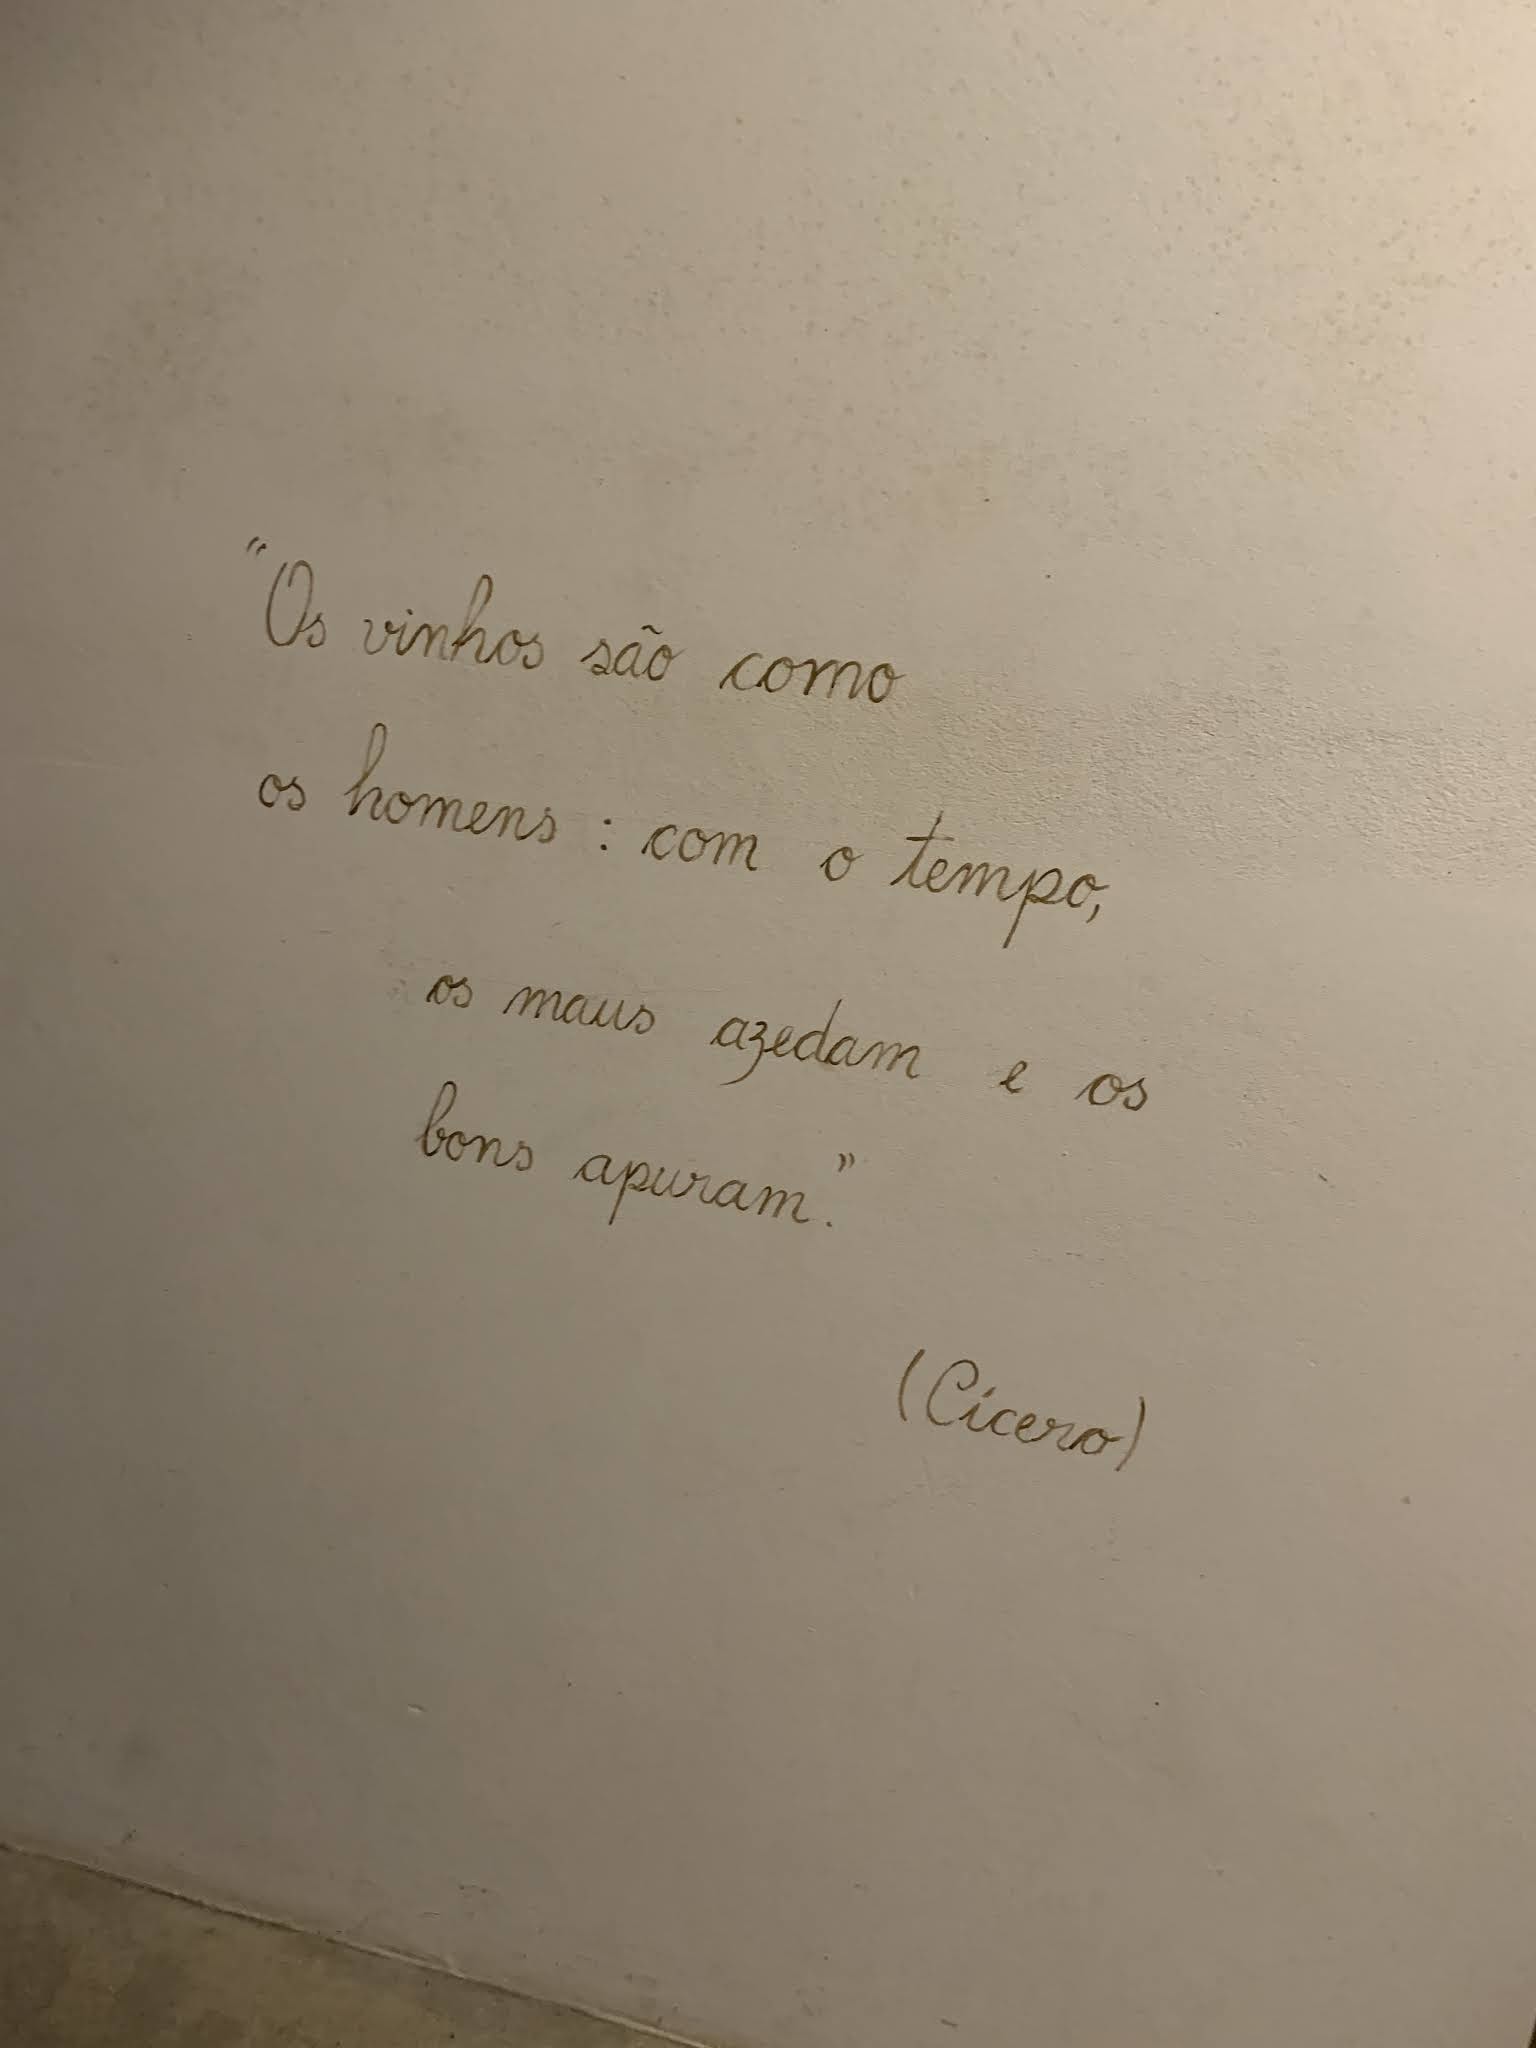 "Os vinhos são como
os homens : com o tempo,
os maus azedam e os
bons apuram."
(Cícero)